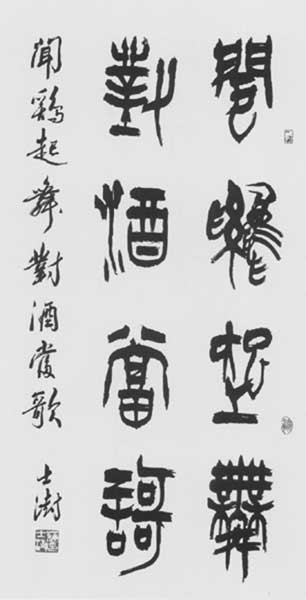 聞雞起舞
對酒當歌
聞鷄起舞對酒當歌
士澍